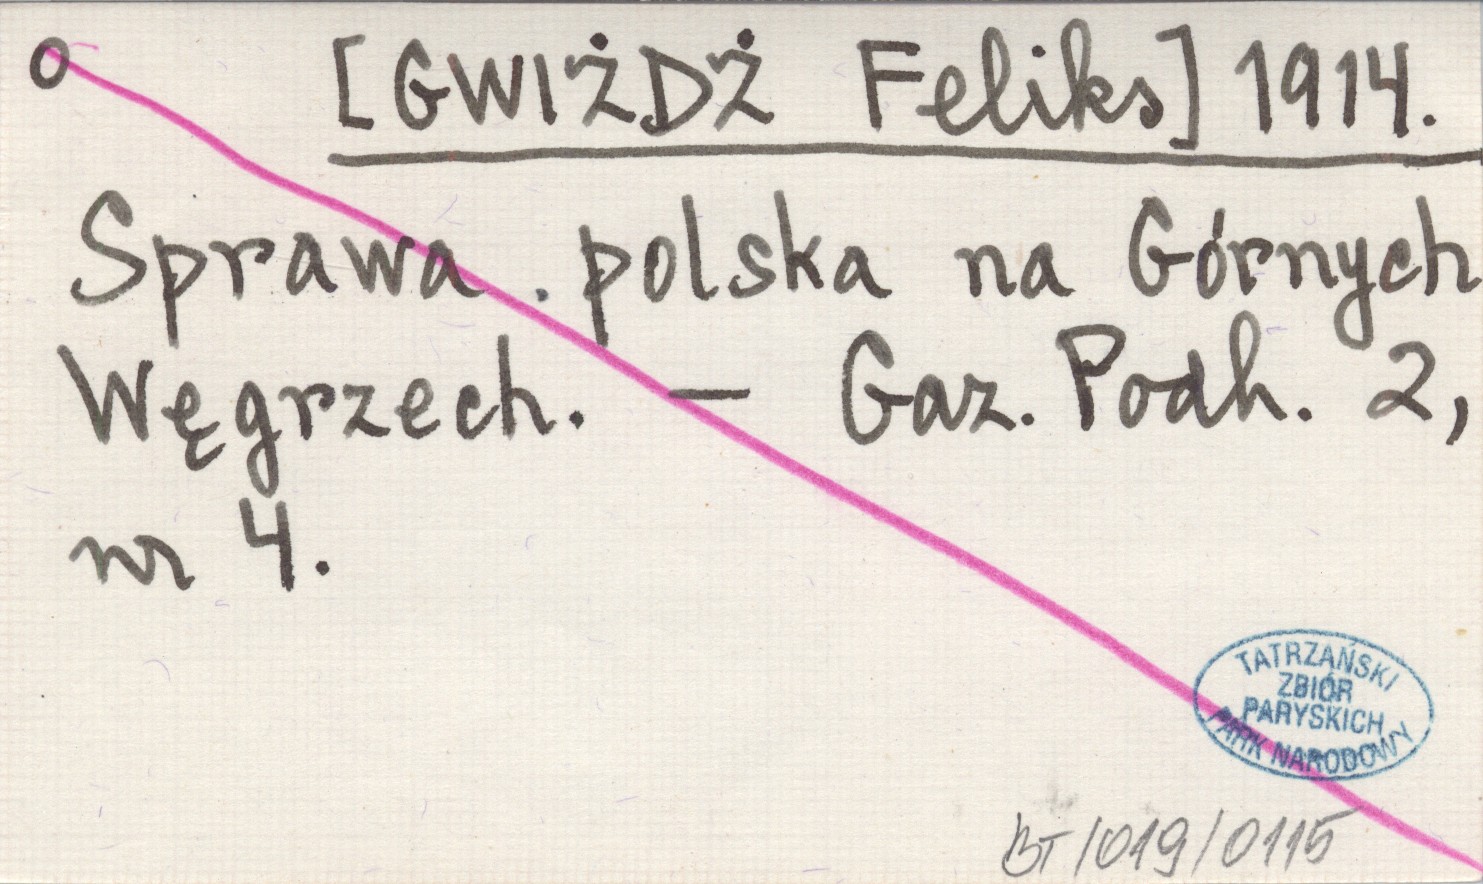 o [GWIŻDŻ Feliks] 1914.
Sprawa . polska na Górnych
Węgrzech. — Gaz. Podh. 2,
nr 4.
TATRZAŃSKI
ZBIÓR
PARYSKICH
PARK NARODOWY
BT/019/0115